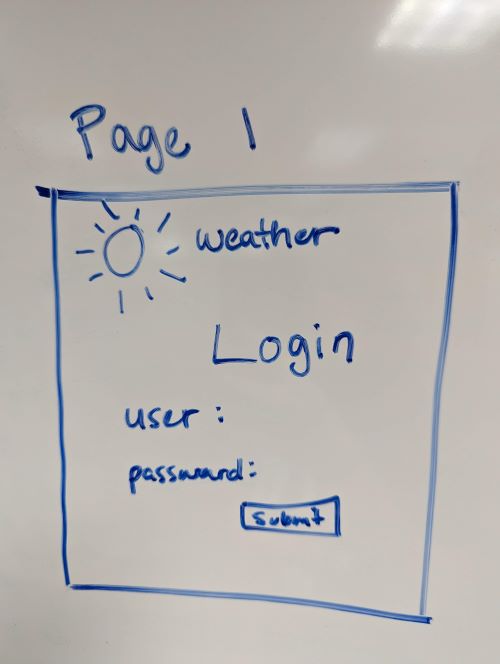 Page 1
weather
Login
user :
password:
Submit